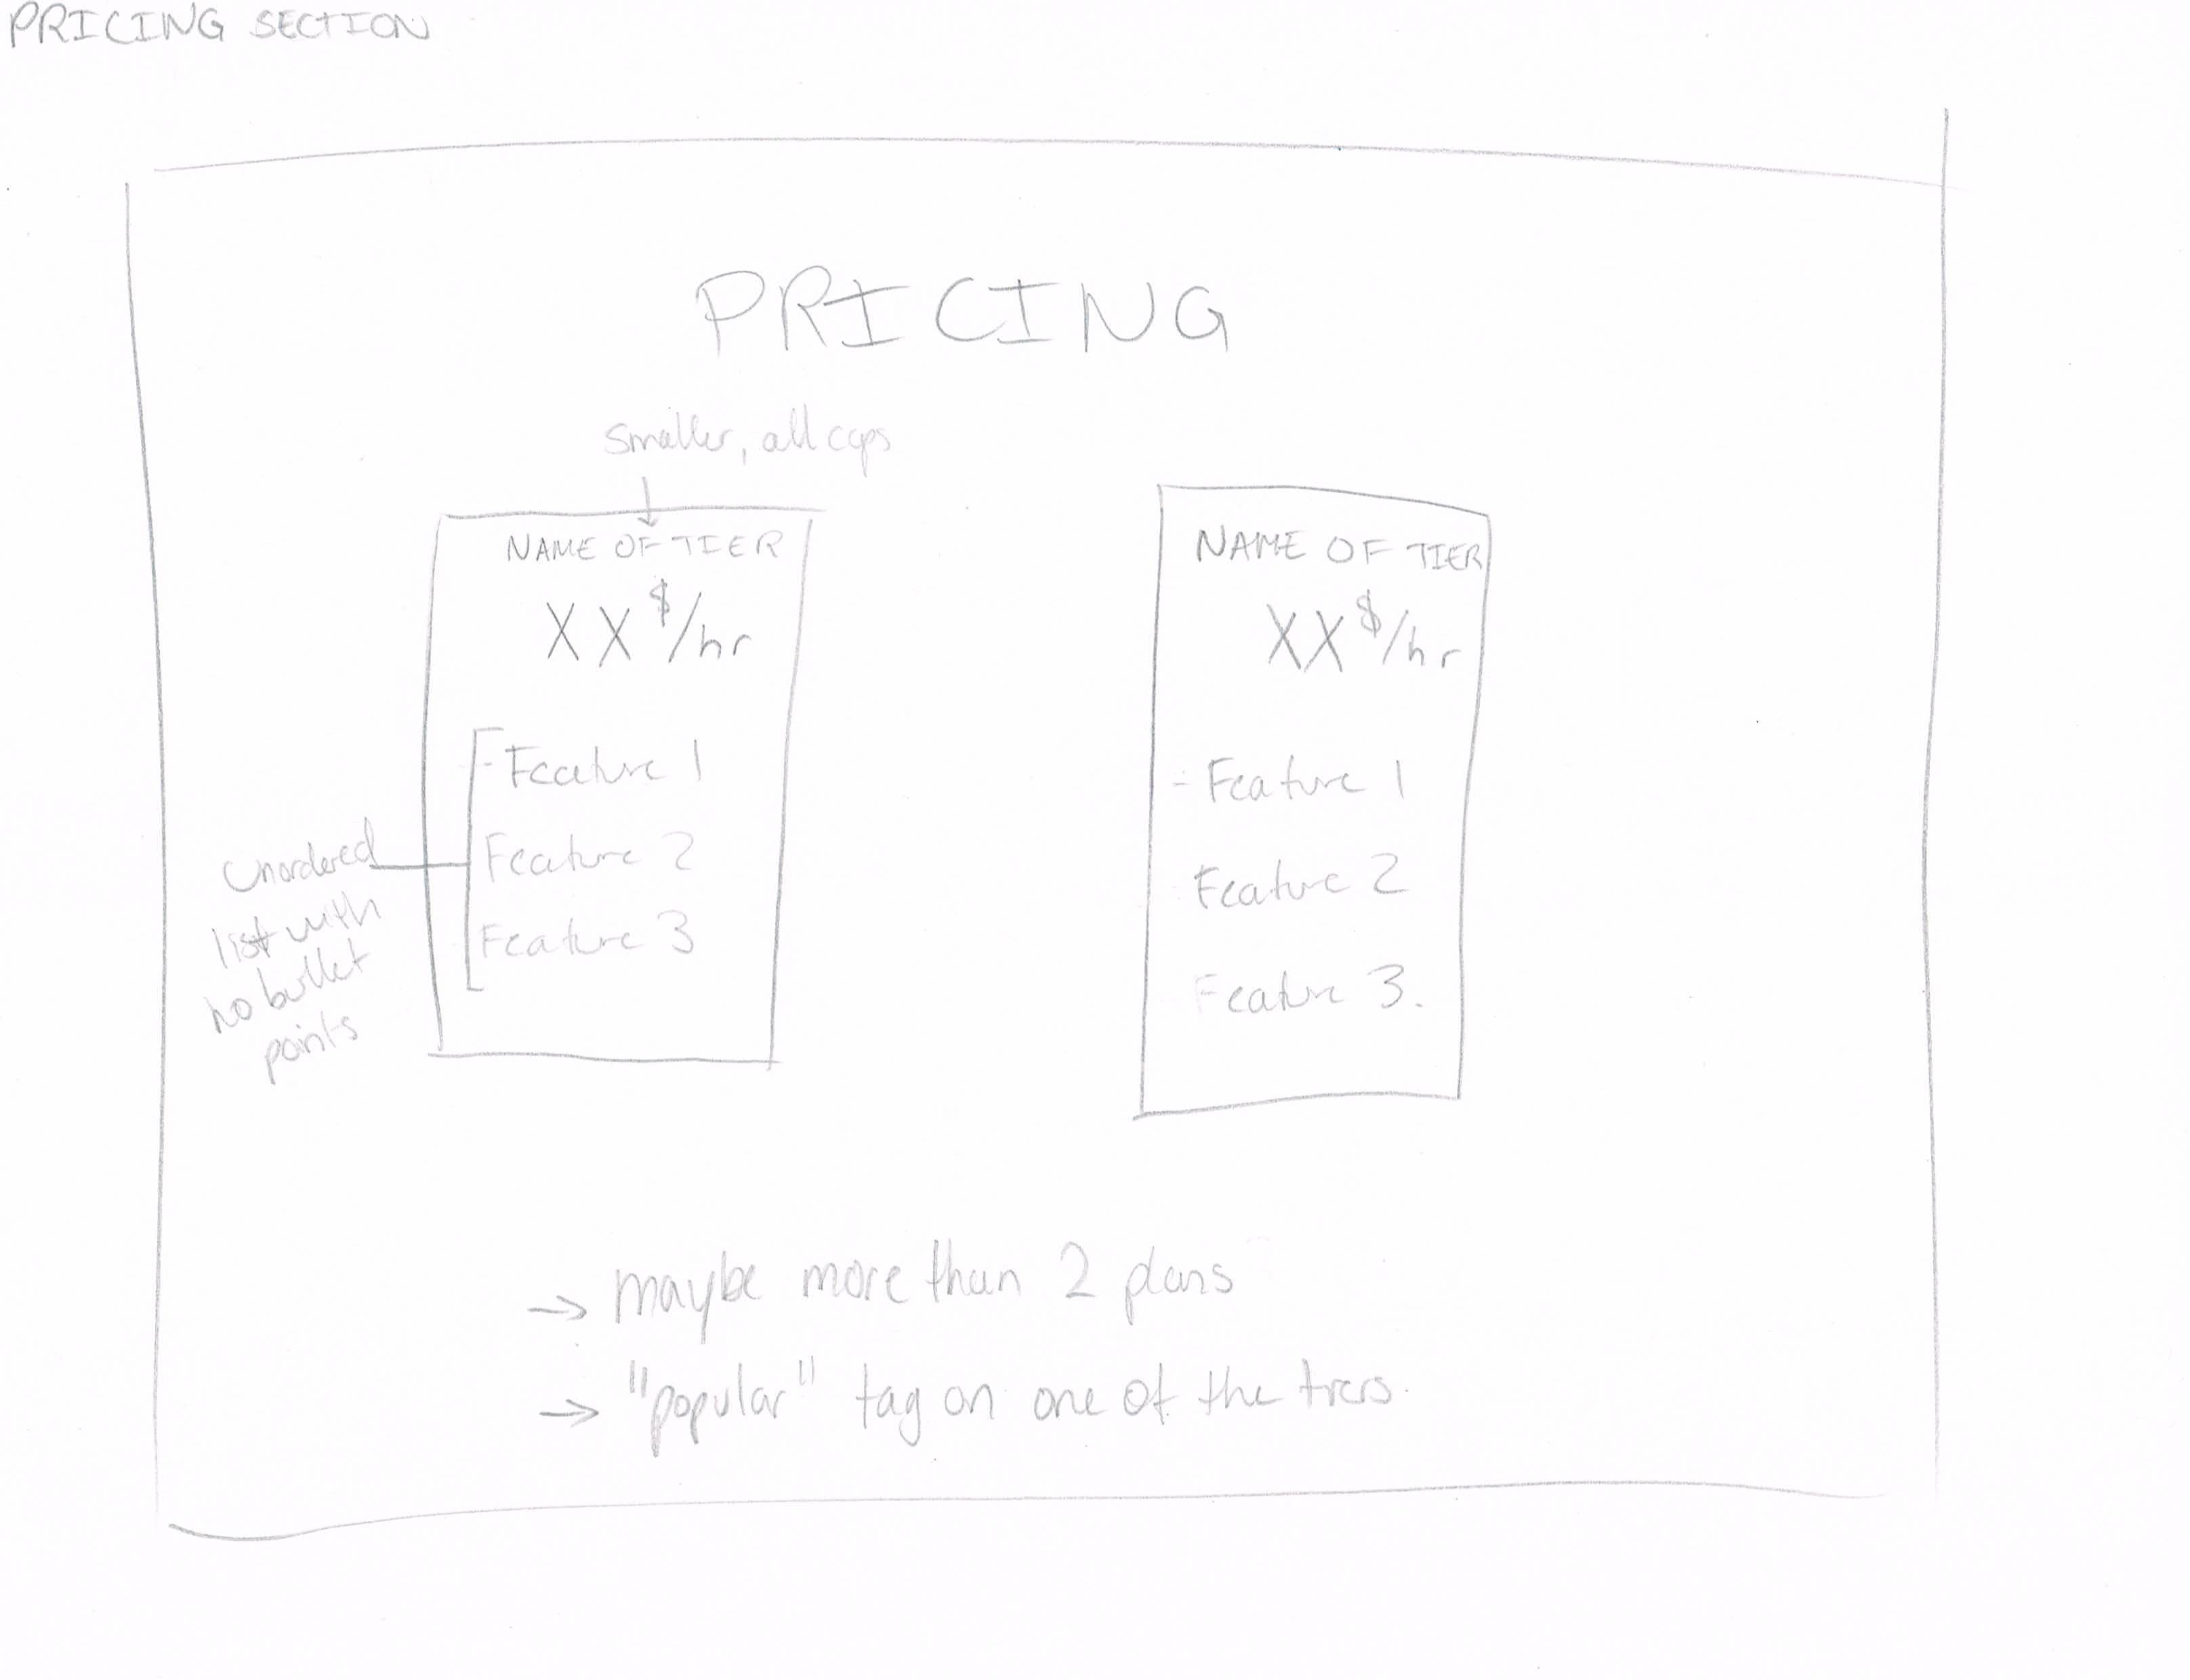 PRICING SECTION
PRICING
Smaller, all caps
NAME OF TIER
XX$/hr
- Feature 1
Feature 2
Feature 3
Unordered
list with
no bullet
points
NAME OF TIER
XX$/hr
- Feature 1
Feature 2
Feature 3.
→ maybe more than 2 plans
→ "popular" tag on one of the tiers.